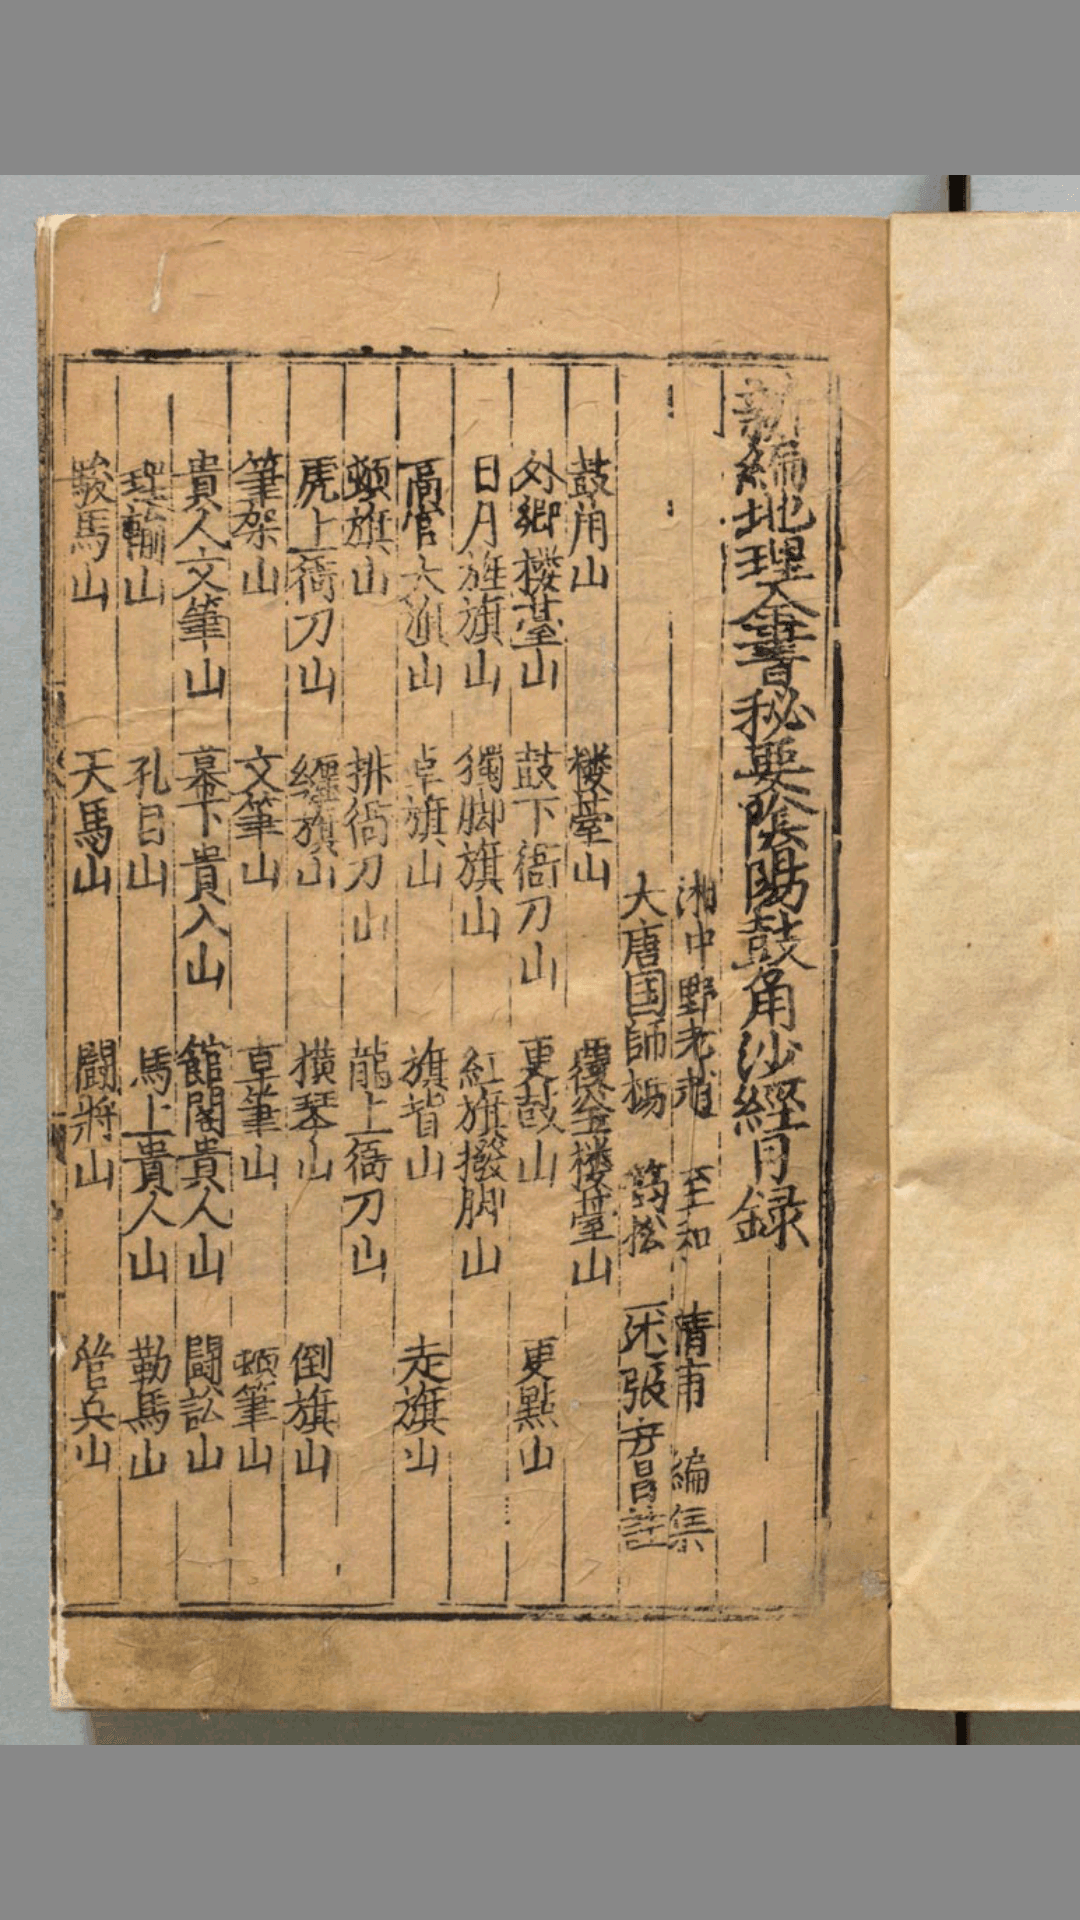 新編地理全書秘要陰陽鼓角沙經目録
湘中野老 至和 清甫 編集
大唐国師楊 筠松 張 註
鼓角山 楼䑓山 覆釜楼䑓山
外郷楼䑓山 鼓下衙刀山 更鼓山 更點山
日月旌旗山 獨脚旗山 紅旗撥脚山
高官大旗山 卓旗山 旗山 走旗山
頓旗山 排衙刀山 龍上衙刀山
虎上衙刀山 纒旗山 横琴山 倒旗山
筆架山 文筆山 卓筆山 頓筆山
貴人文筆山 幕下貴人山 館閣貴人山 闘訟山
山 孔目山 馬上貴人山 勒馬山
駿馬山 天馬山 闘將山 管兵山